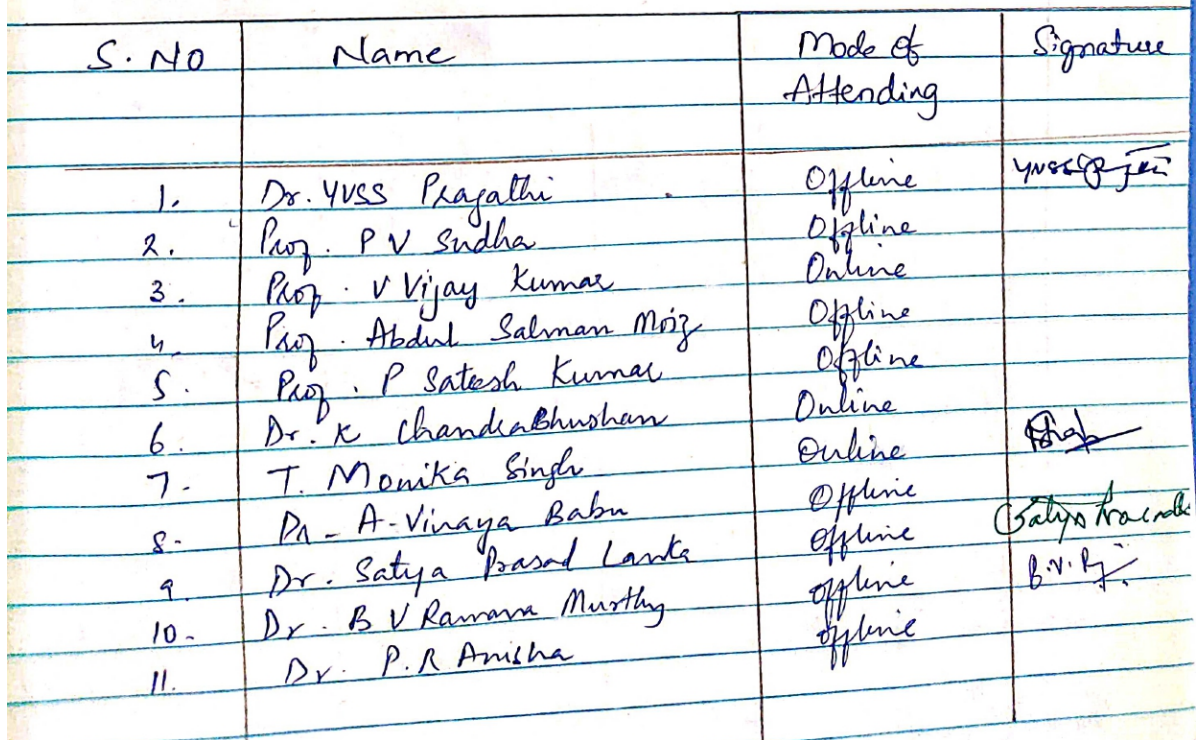 S. No Name Mode of Attending Signature
1. Dr. YVSS Pragathi Offline
2. Prof. P V Sudha Offline
3. Prof. V Vijay Kumar Online
4. Prof. Abdul Salman Moiz Offline
5. Prof. P Sateesh Kumar Offline
6. Dr. K ChandraBhushan Online
7. T. Monika Singh Online
8. Dr. A. Vinaya Babu Offline
9. Dr. Satya Prasad Lanka Offline
10. Dr. B V Ramana Murthy offline B.V.R
11. Dr. P.R Anisha offline